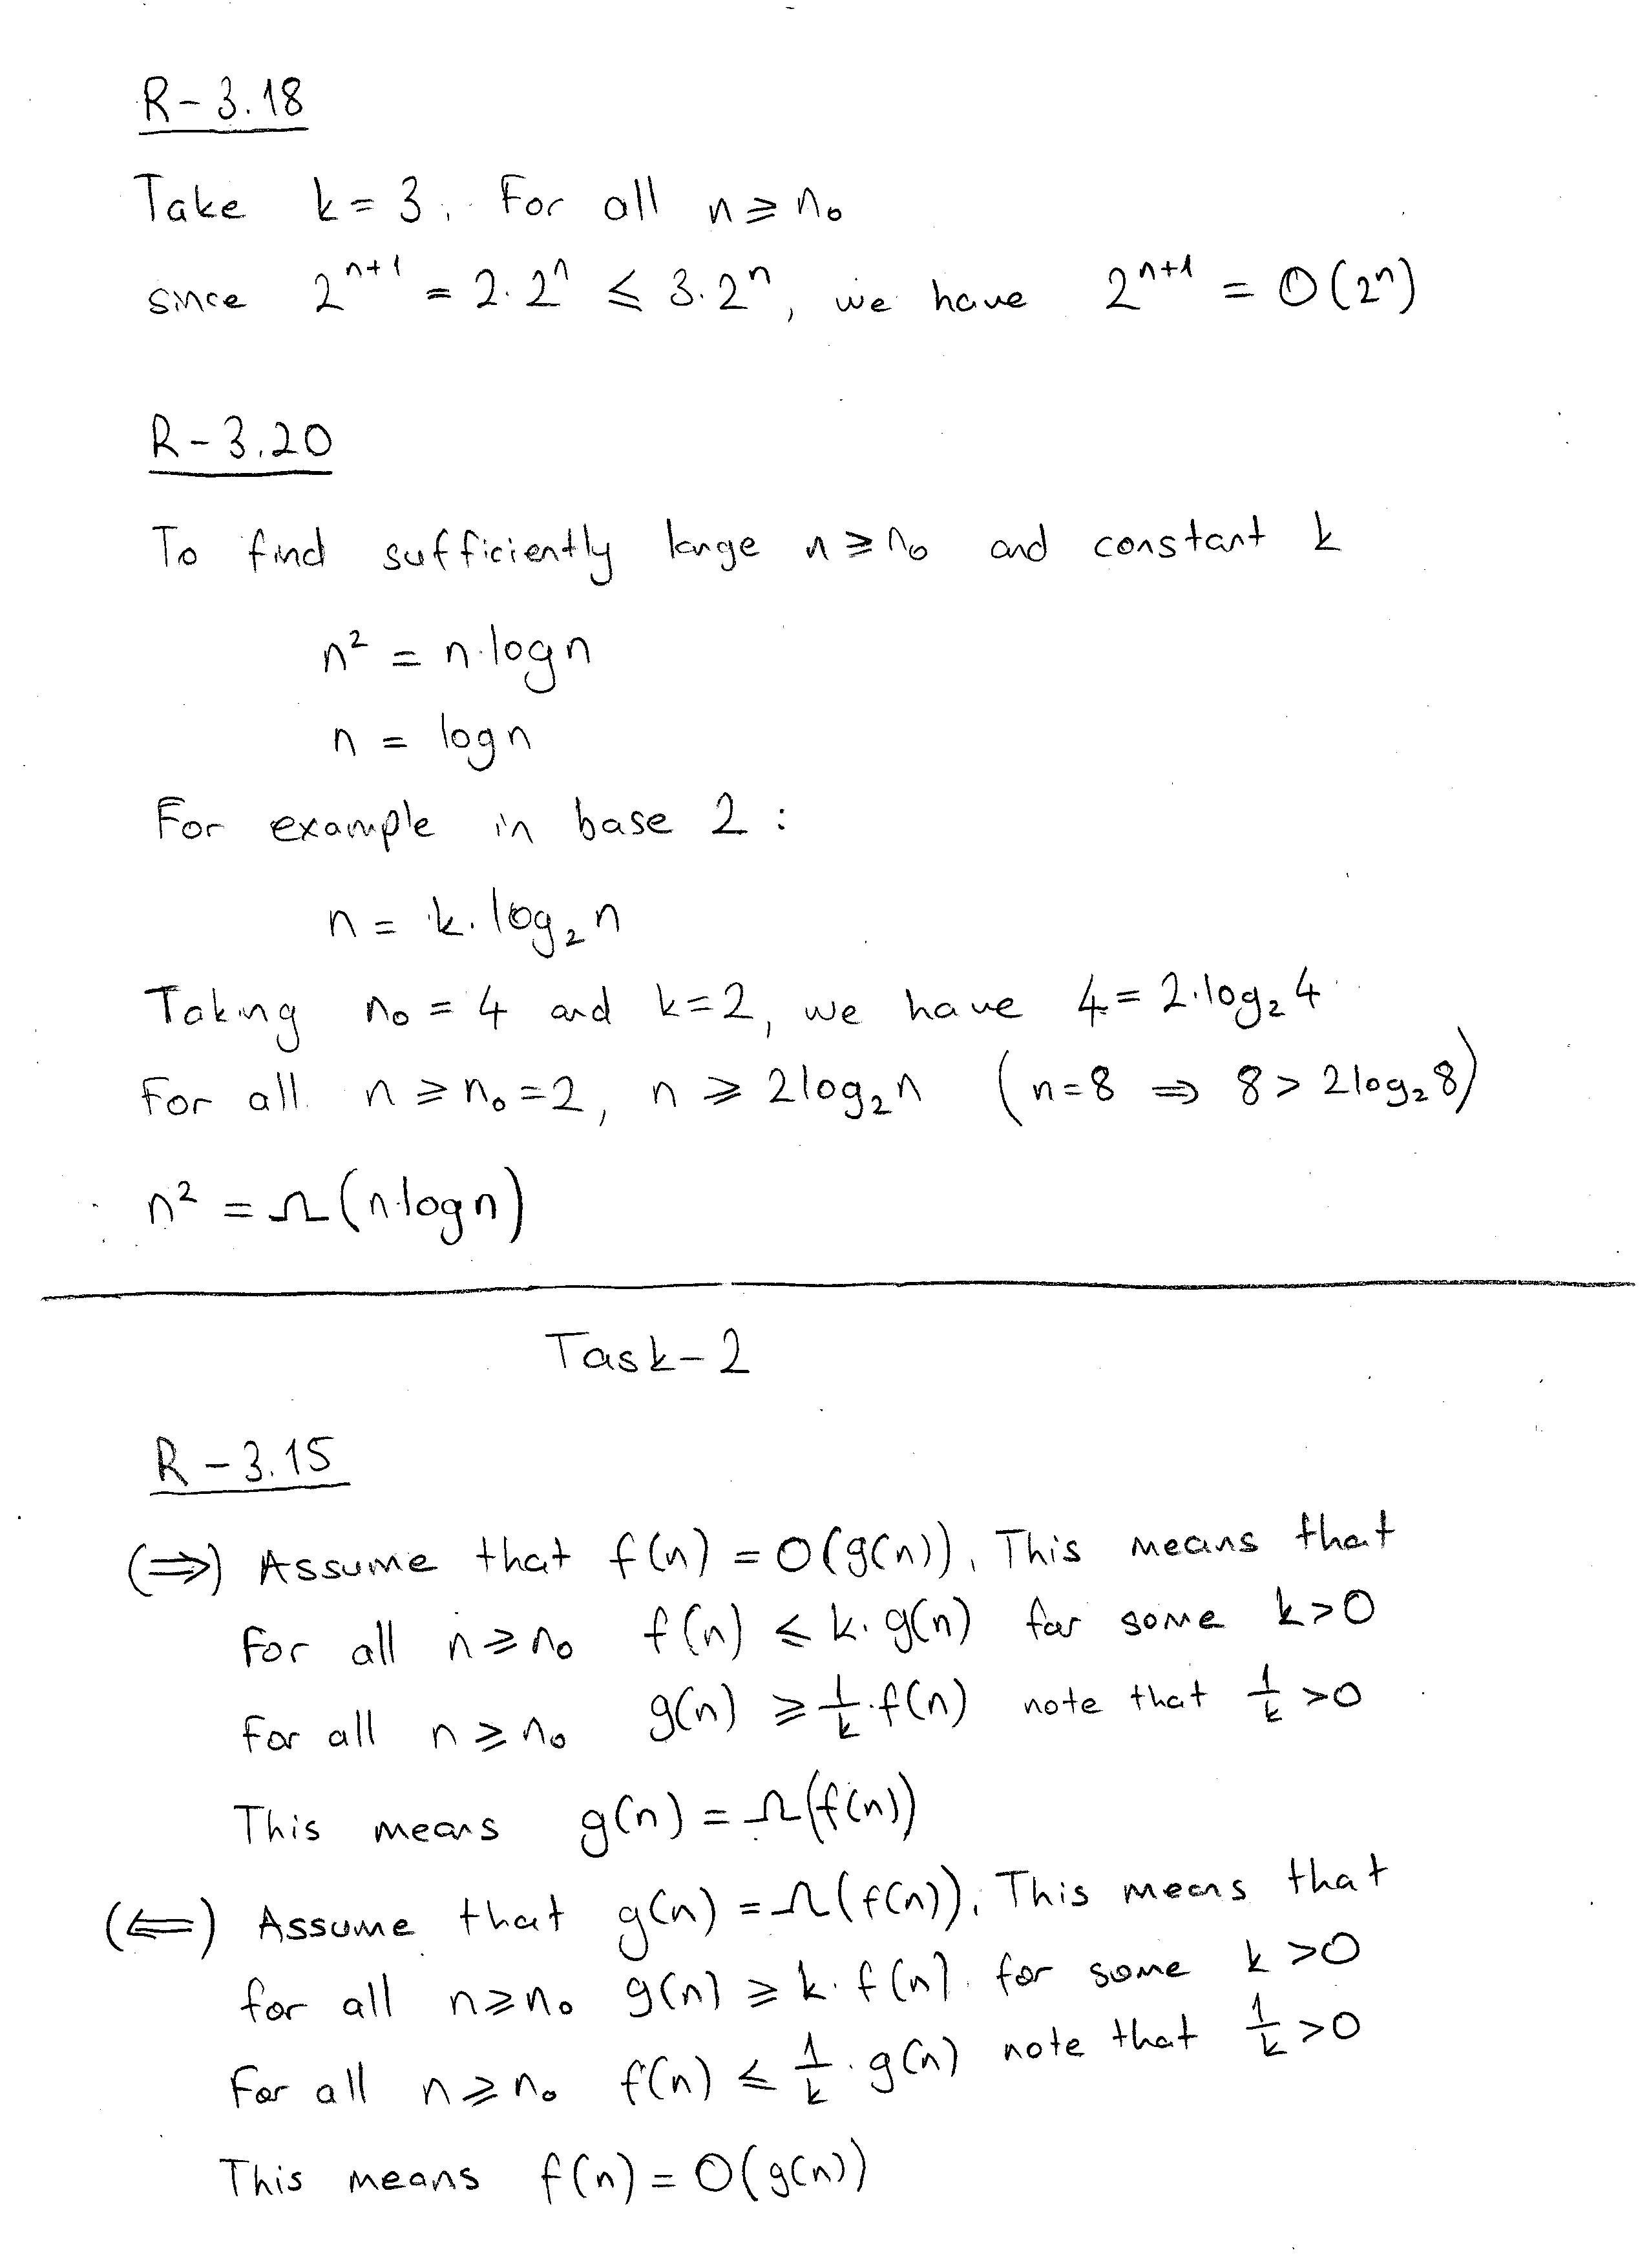 R-3.18
Take k = 3. For all n ≥ n₀
since 2ⁿ⁺¹ = 2·2ⁿ ≤ 3·2ⁿ, we have 2ⁿ⁺¹ = O(2ⁿ)
R-3.20
To find sufficiently large n ≥ n₀ and constant k
n² = n·logn
n = logn
For example in base 2:
n = k·log₂n
Taking n₀ = 4 and k=2, we have 4 = 2·log₂4
For all n ≥ n₀ = 2, n ≥ 2log₂n (n=8 ⇒ 8 > 2log₂8)
n² = Ω(n·logn)
Task-2
R-3.15
(⇒) Assume that f(n) = O(g(n)). This means that
For all n ≥ n₀ f(n) ≤ k·g(n) for some k>0
For all n ≥ n₀ g(n) ≥ 1/k·f(n) note that 1/k >0
This means g(n) = Ω(f(n))
(⇐) Assume that g(n) = Ω(f(n)). This means that
for all n≥n₀ g(n) ≥ k·f(n) for some k >0
For all n ≥ n₀ f(n) ≤ 1/k·g(n) note that 1/k >0
This means f(n) = O(g(n))